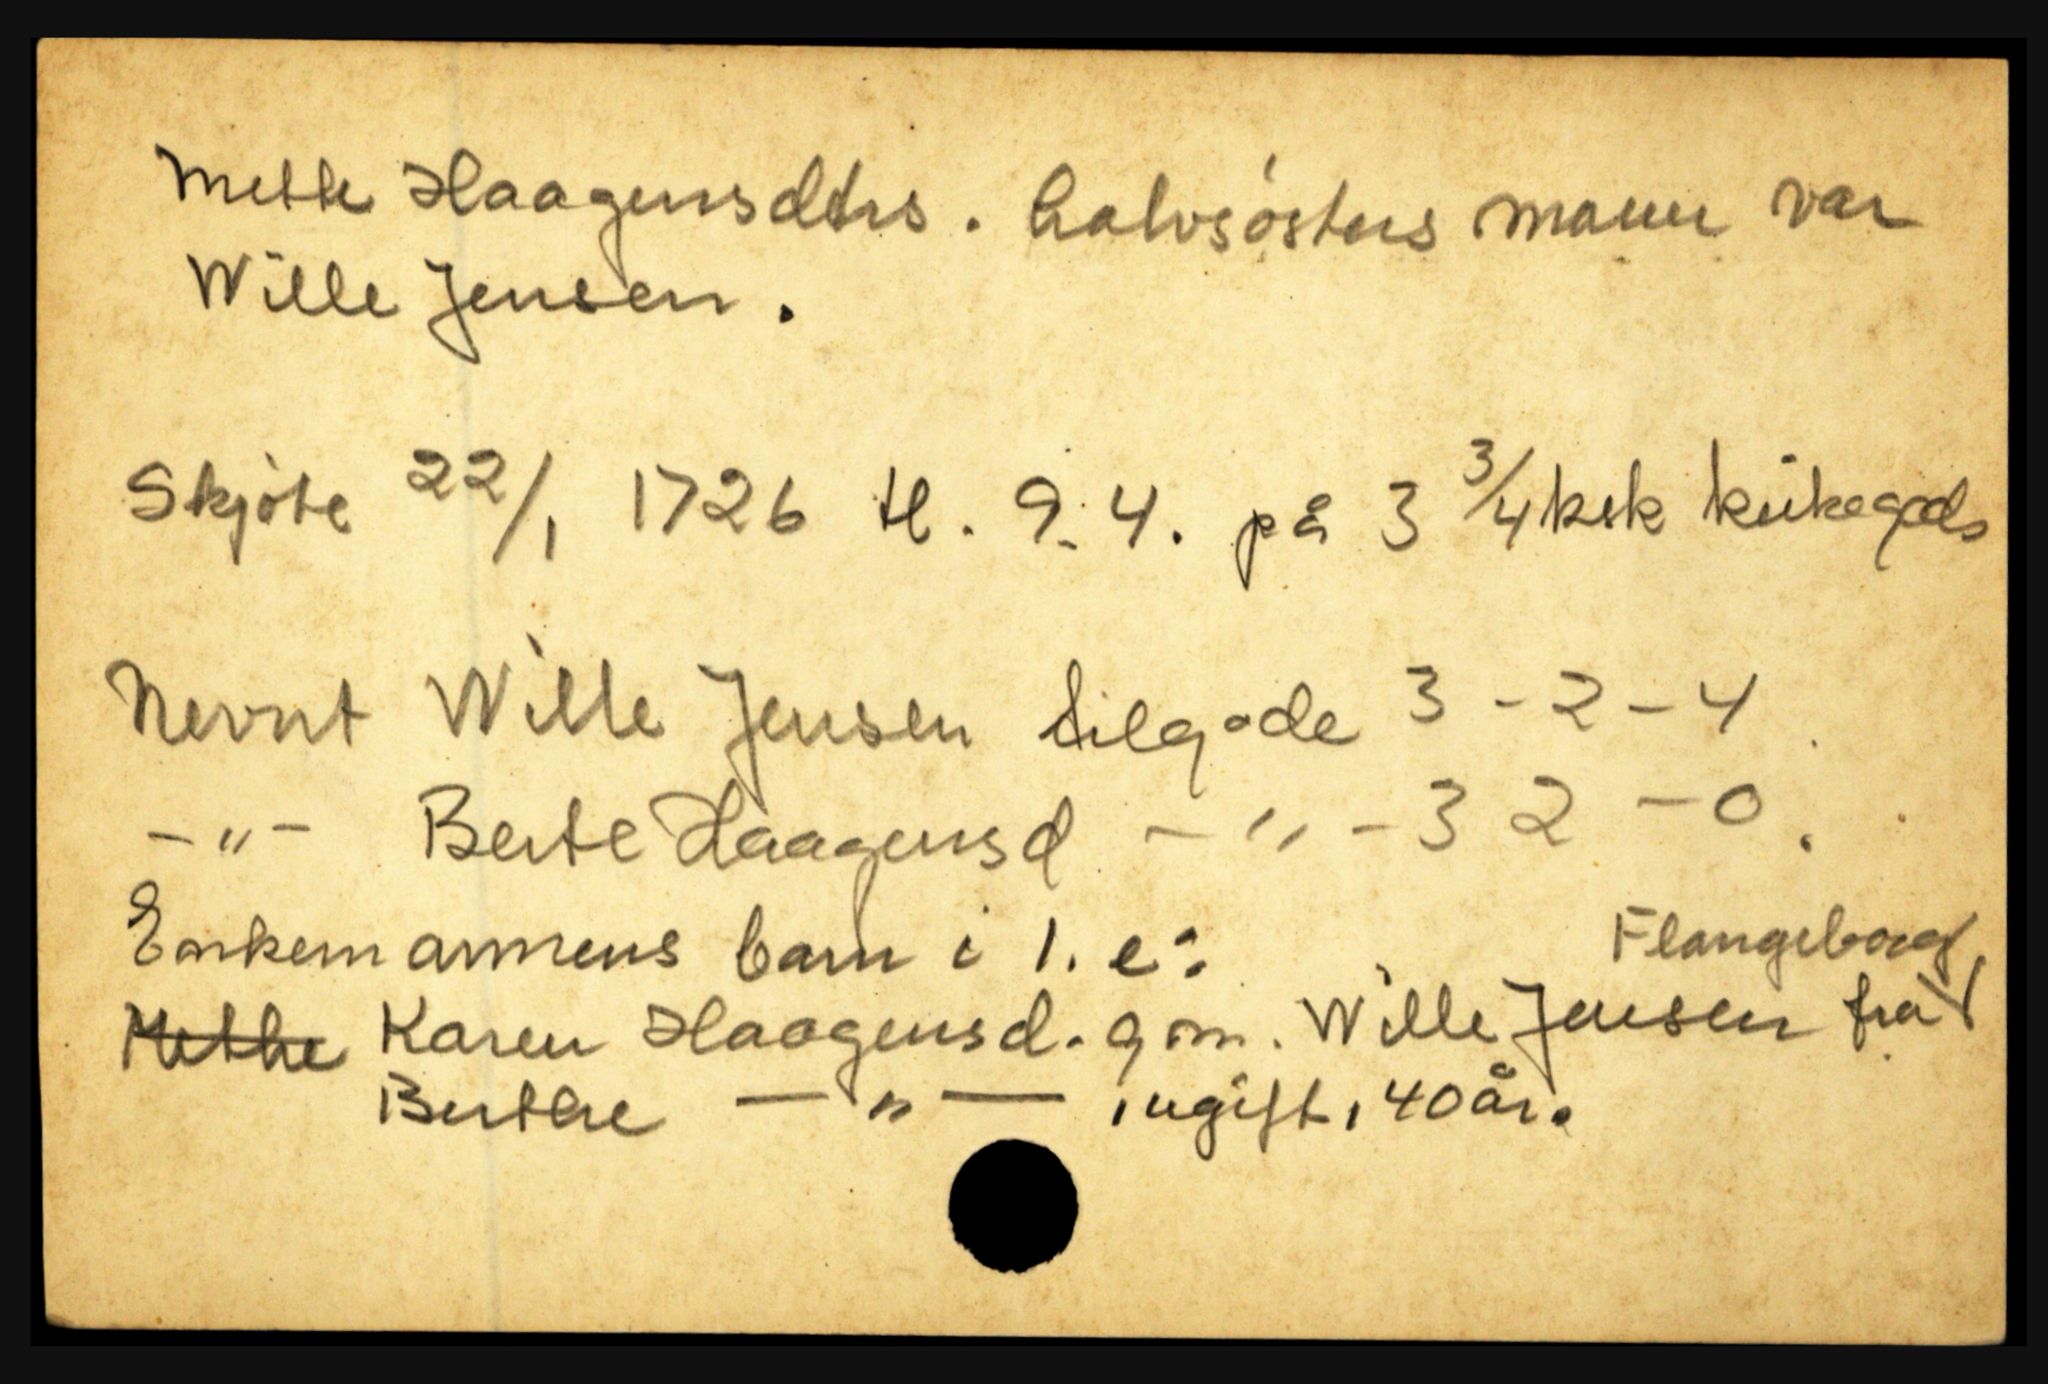 Mette Haagensdtrs. halvsösters mann var
Wille Jensen.
Skjöte 22/1 1726 tl. 9.4. på 3 3/4 ksk kirkegods
Nevnt Wille Jensen tilgode 3-2-4.
-"- Berte Haagensd -"- 3 2 - 0.
Enkemannens barn i 1. e:
Flangeborg,
Methe Karen Haagensd. gm. Wille Jensen fra
Berthe -"- , ugift, 40 år.